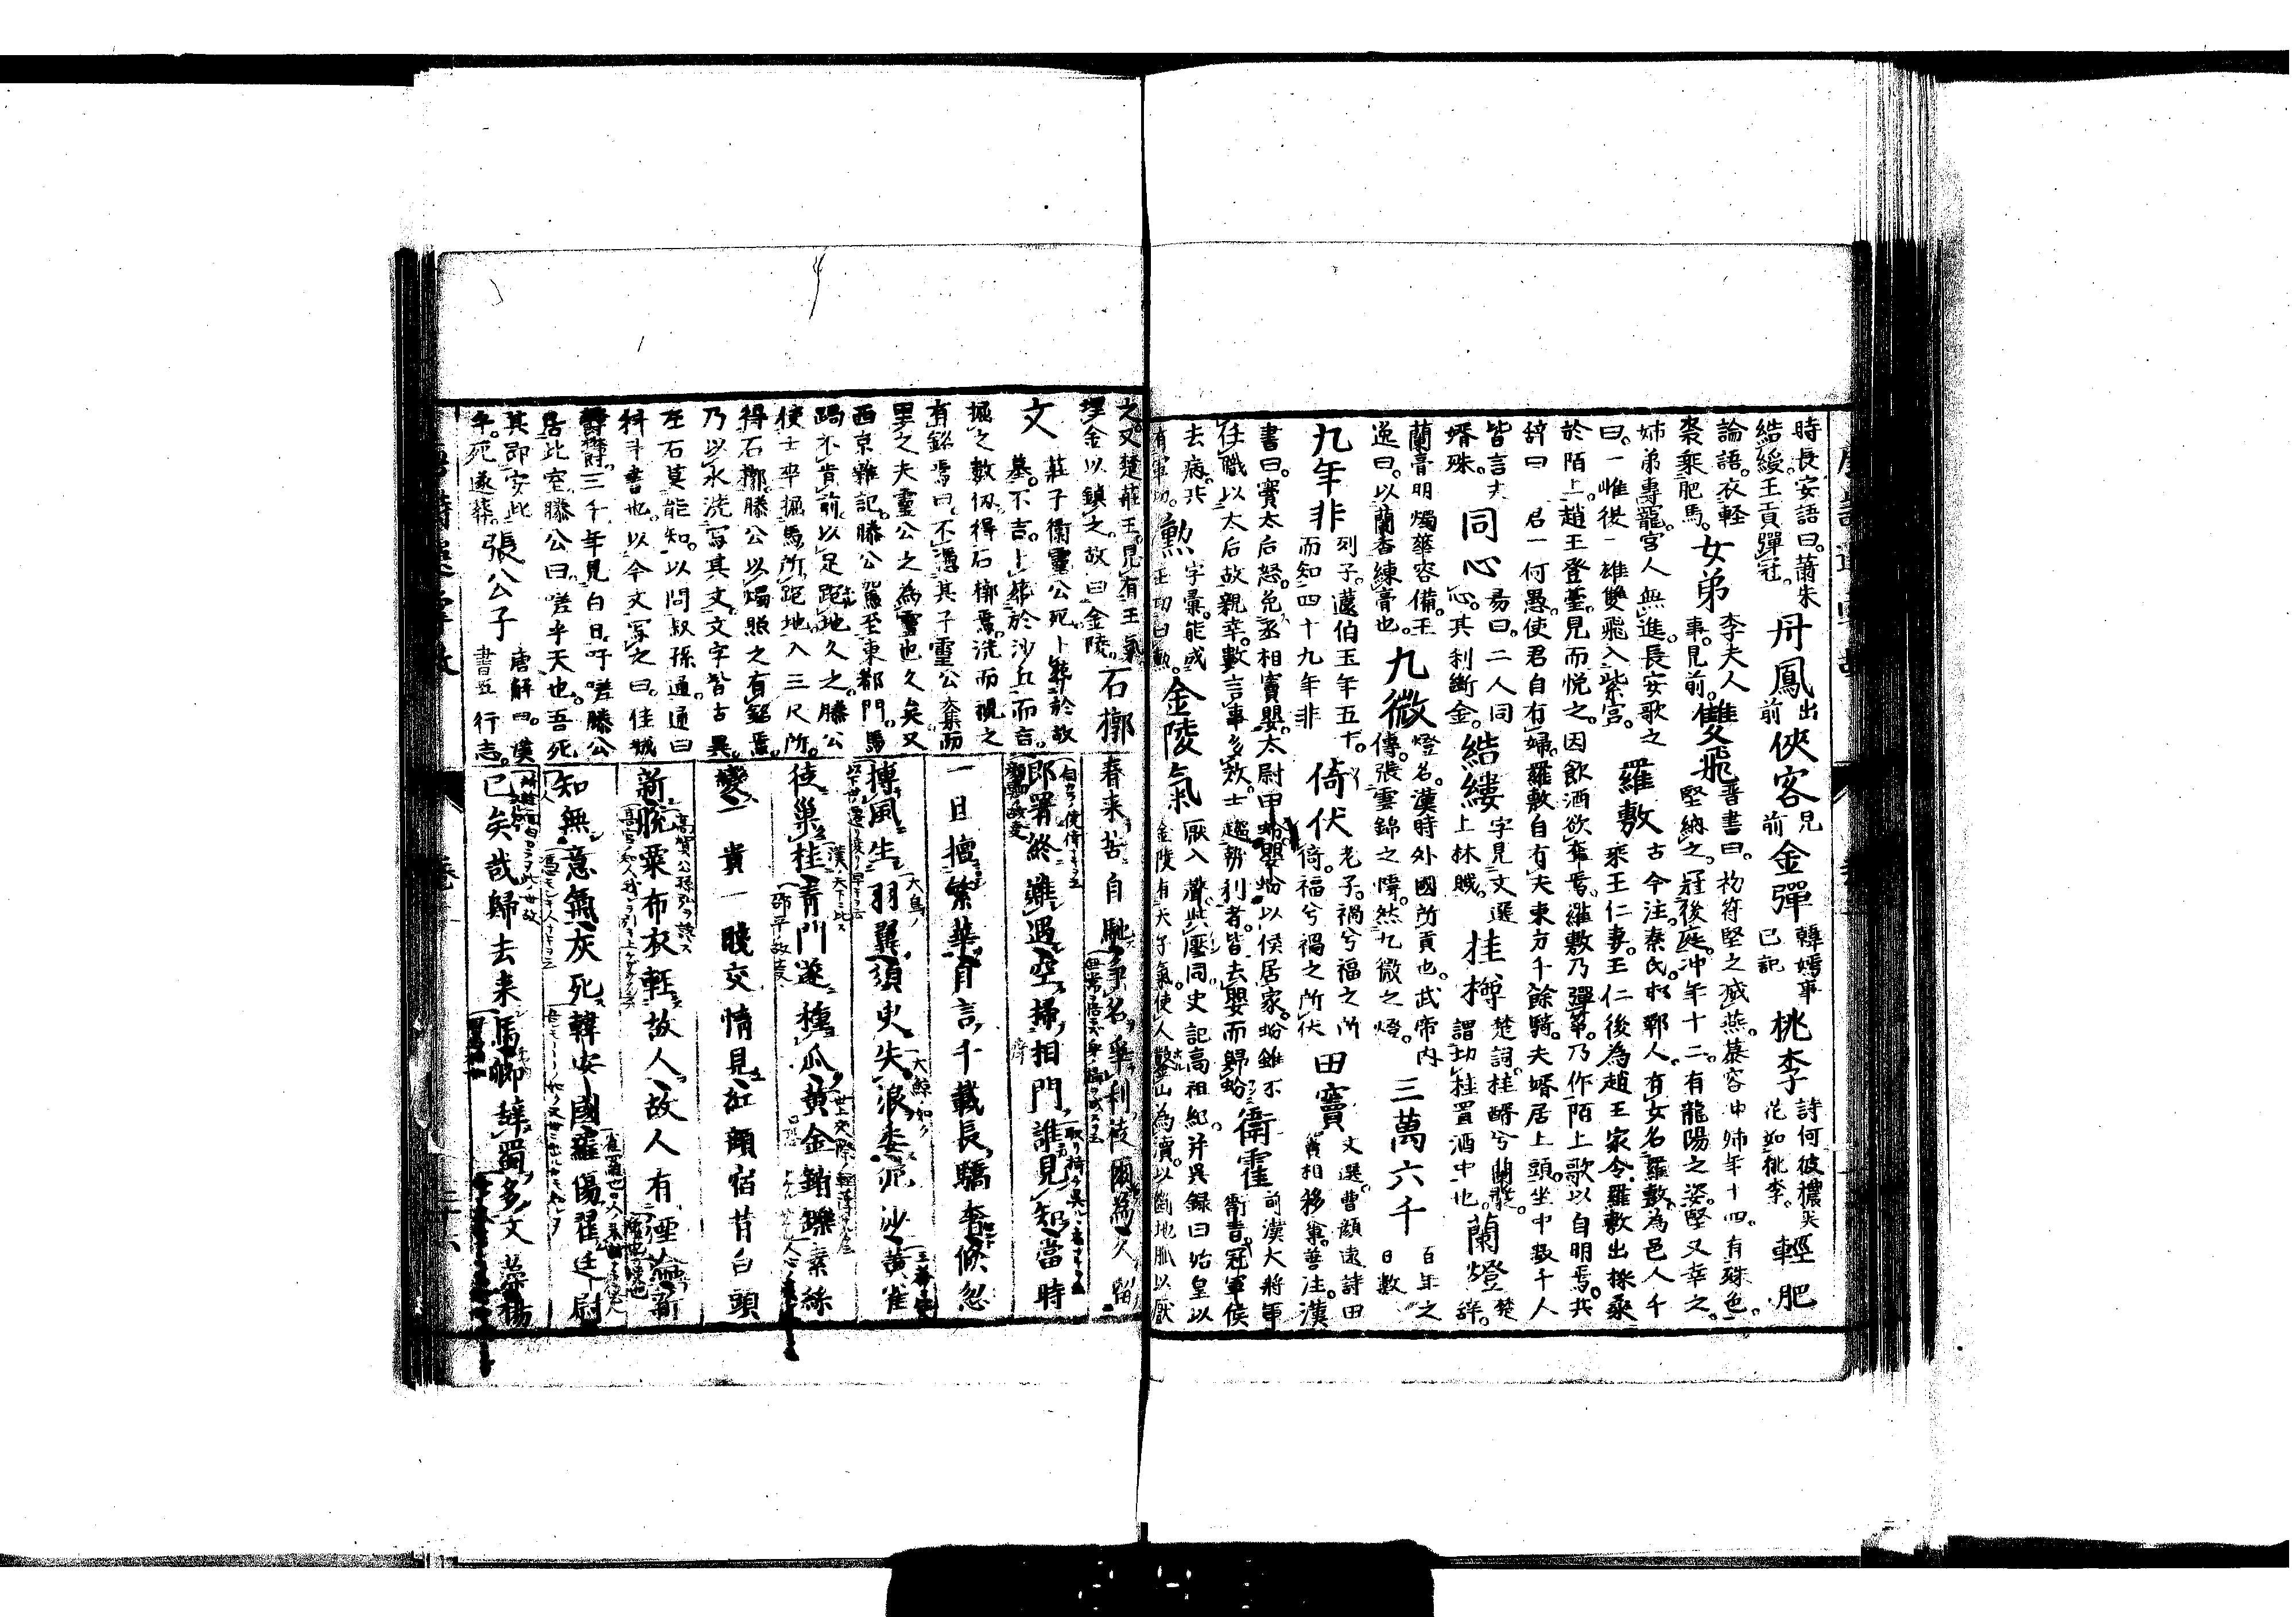 時長安語曰。蕭朱
結綬。王貢彈冠。
丹鳳
出前
俠客
見前
金彈
韓嫣事
已記
桃李
詩何彼穠矣
花如桃李。
輕肥
論語。衣軽
裘乘肥馬。
女弟
李夫人
事。見前。
雙飛
晋書曰。初符堅之滅燕。慕容冲姉年十四。有殊色。
堅納之。冠後庭。冲年十二。有龍陽之姿。堅又幸之。
姉弟專寵。宮人無進。長安歌之
曰。一雌復一雄雙飛入紫宮。
羅敷
古今注。秦氏。邯鄲人。有女名羅敷。為邑人千
乘王仁妻。王仁後為趙王家令。羅敷出採桑
於陌上。趙王登臺。見而悦之。因飲酒欲奪焉。羅敷乃彈箏。乃作陌上歌以自明焉。其
辞曰 君一何愚。使君自有婦。羅敷自有夫東方千餘騎。夫婿居上頭。坐中数千人
皆言夫
婿殊。
同心
易曰。二人同
心。其利断金。
結縷
字見文選
上林賦。
挂樽
楚詞。桂醑兮蘭
謂切桂置酒中也。
蘭燈
楚辞。
蘭膏明燭華容備。王
逸曰。以蘭香練膏也。
九微
燈名。漢時外國所貢也。武帝内
傳。張雲錦之幃。然九微之燈。
三萬六千
百年之
日數
九年非
列子。蘧伯玉年五十。
而知四十九年非
倚伏
老子。禍兮福之所
倚。福兮禍之所伏
田竇
文選。曹顔遠詩田
竇相移奪。善注。漢
書曰。竇太后怒。免丞相竇嬰。太尉田蚡。嬰蚡以侯居家。蚡雖不
任職以太后故親幸。數言事多效。士趨勢利者。皆去嬰而歸蚡
衛霍
前漢大將軍
衛青。冠軍侯
去病。共
有軍功。
勲
字彙。能成
王功曰勲。
金陵氣
厭入聲。與壓同。史記高祖紀并異録曰始皇以
金陵有天子氣。使人鑿山為瀆。以断地脈以厭
之。又楚莊王。見有王氣
埋金以鎮之。故曰金陵。
石槨
文
莊子衛靈公死。卜葬於故
墓。不吉。卜葬於沙丘而吉。
掘之數仭。得石槨焉。洗而視之
有銘焉曰。不憑其子靈公奪而
里之夫靈公之為靈也久矣又
西京雜記。滕公駕至東都門。馬
跼不肯前。以足跑地久之。滕公
使士卒掘馬所跑地。入三尺所。
得石槨。滕公以燭照之有銘焉。
乃以水洗写其文。文字皆古異。
左右莫能知。以問叔孫通。通曰
科斗書也。以今文写之曰。佳城
鬱鬱。三千年見白日。吁嗟滕公
居此室滕公曰。嗟乎天也。吾死
其即安此
乎。死遂葬。
張公子
唐解曰。漢
書五行志。
春来苦自馳争名争利徒爾為久留
郎署終難遇空掃相門誰見知當時
一旦擅繁華自言千載長驕奢倐忽
摶風生羽翼須臾失浪委泥沙黄雀
徒巢桂青門遂種瓜黄金銷鑠素絲
變一貴一賤交情見紅顔宿昔白頭
新脱粟布衣輕故人故人有湮淪新
知無意氣灰死韓安國羅傷翟廷尉
已矣哉歸去来馬卿辞蜀多文藻楊